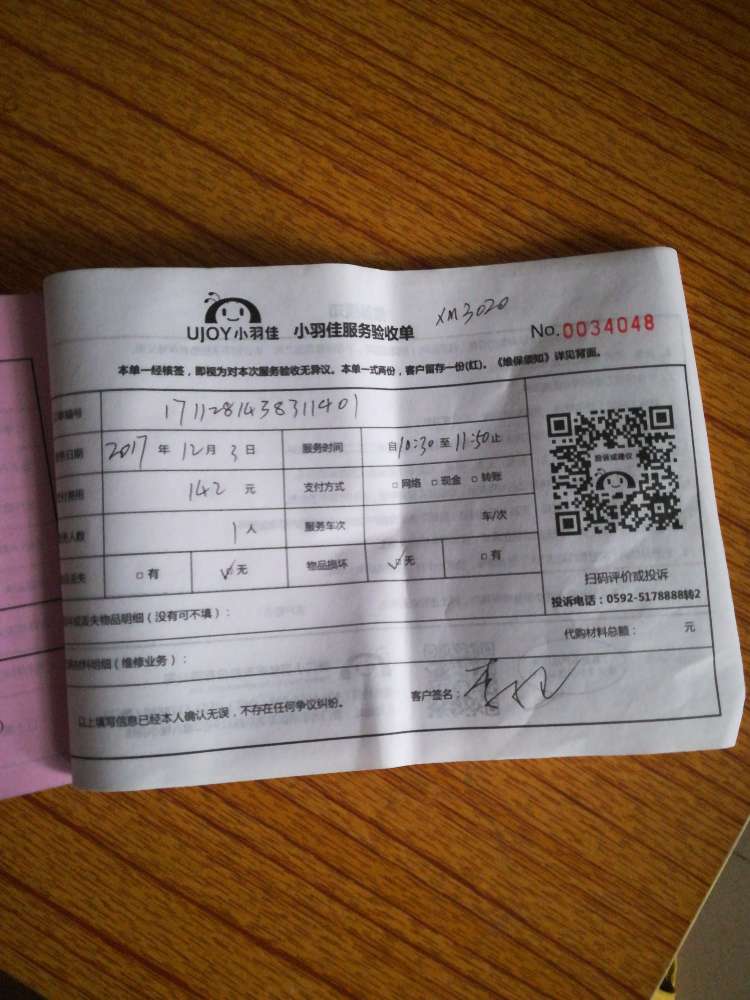 UJOY小羽佳 小羽佳服务验收单 XM3020 No.0034048
本单一经核签，即视为对本次服务验收无异议。本单一式两份，客户留存一份(红)。《维保须知》详见背面。
单编号 1711281438311401
日期 2017 年 12 月 3 日 服务时间 自 10:30 至 11:50 止
费用 142 元 支付方式 □网络 □现金 □转账
人数 1 人 服务车次 车/次
丢失 □有 ✓□无 物品损坏 ✓□无 □有
投诉或建议
扫码评价或投诉
投诉电话：0592-5178888转2
丢失物品明细（没有可不填）：
材料明细（维修业务）： 代购材料总额： 元
以上填写信息已经本人确认无误，不存在任何争议纠纷。 客户签名：